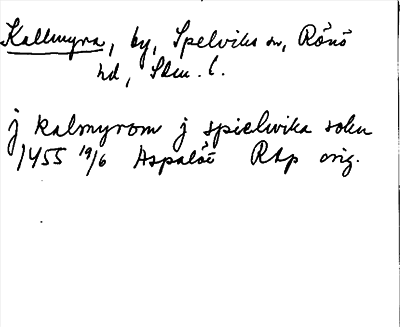 Kallmyra, by, Spelviks sn, Rönö
hd, Söm. l.
j kalmyrom j spielwika sokn
1455 19/6 Aspalöt RAp orig.